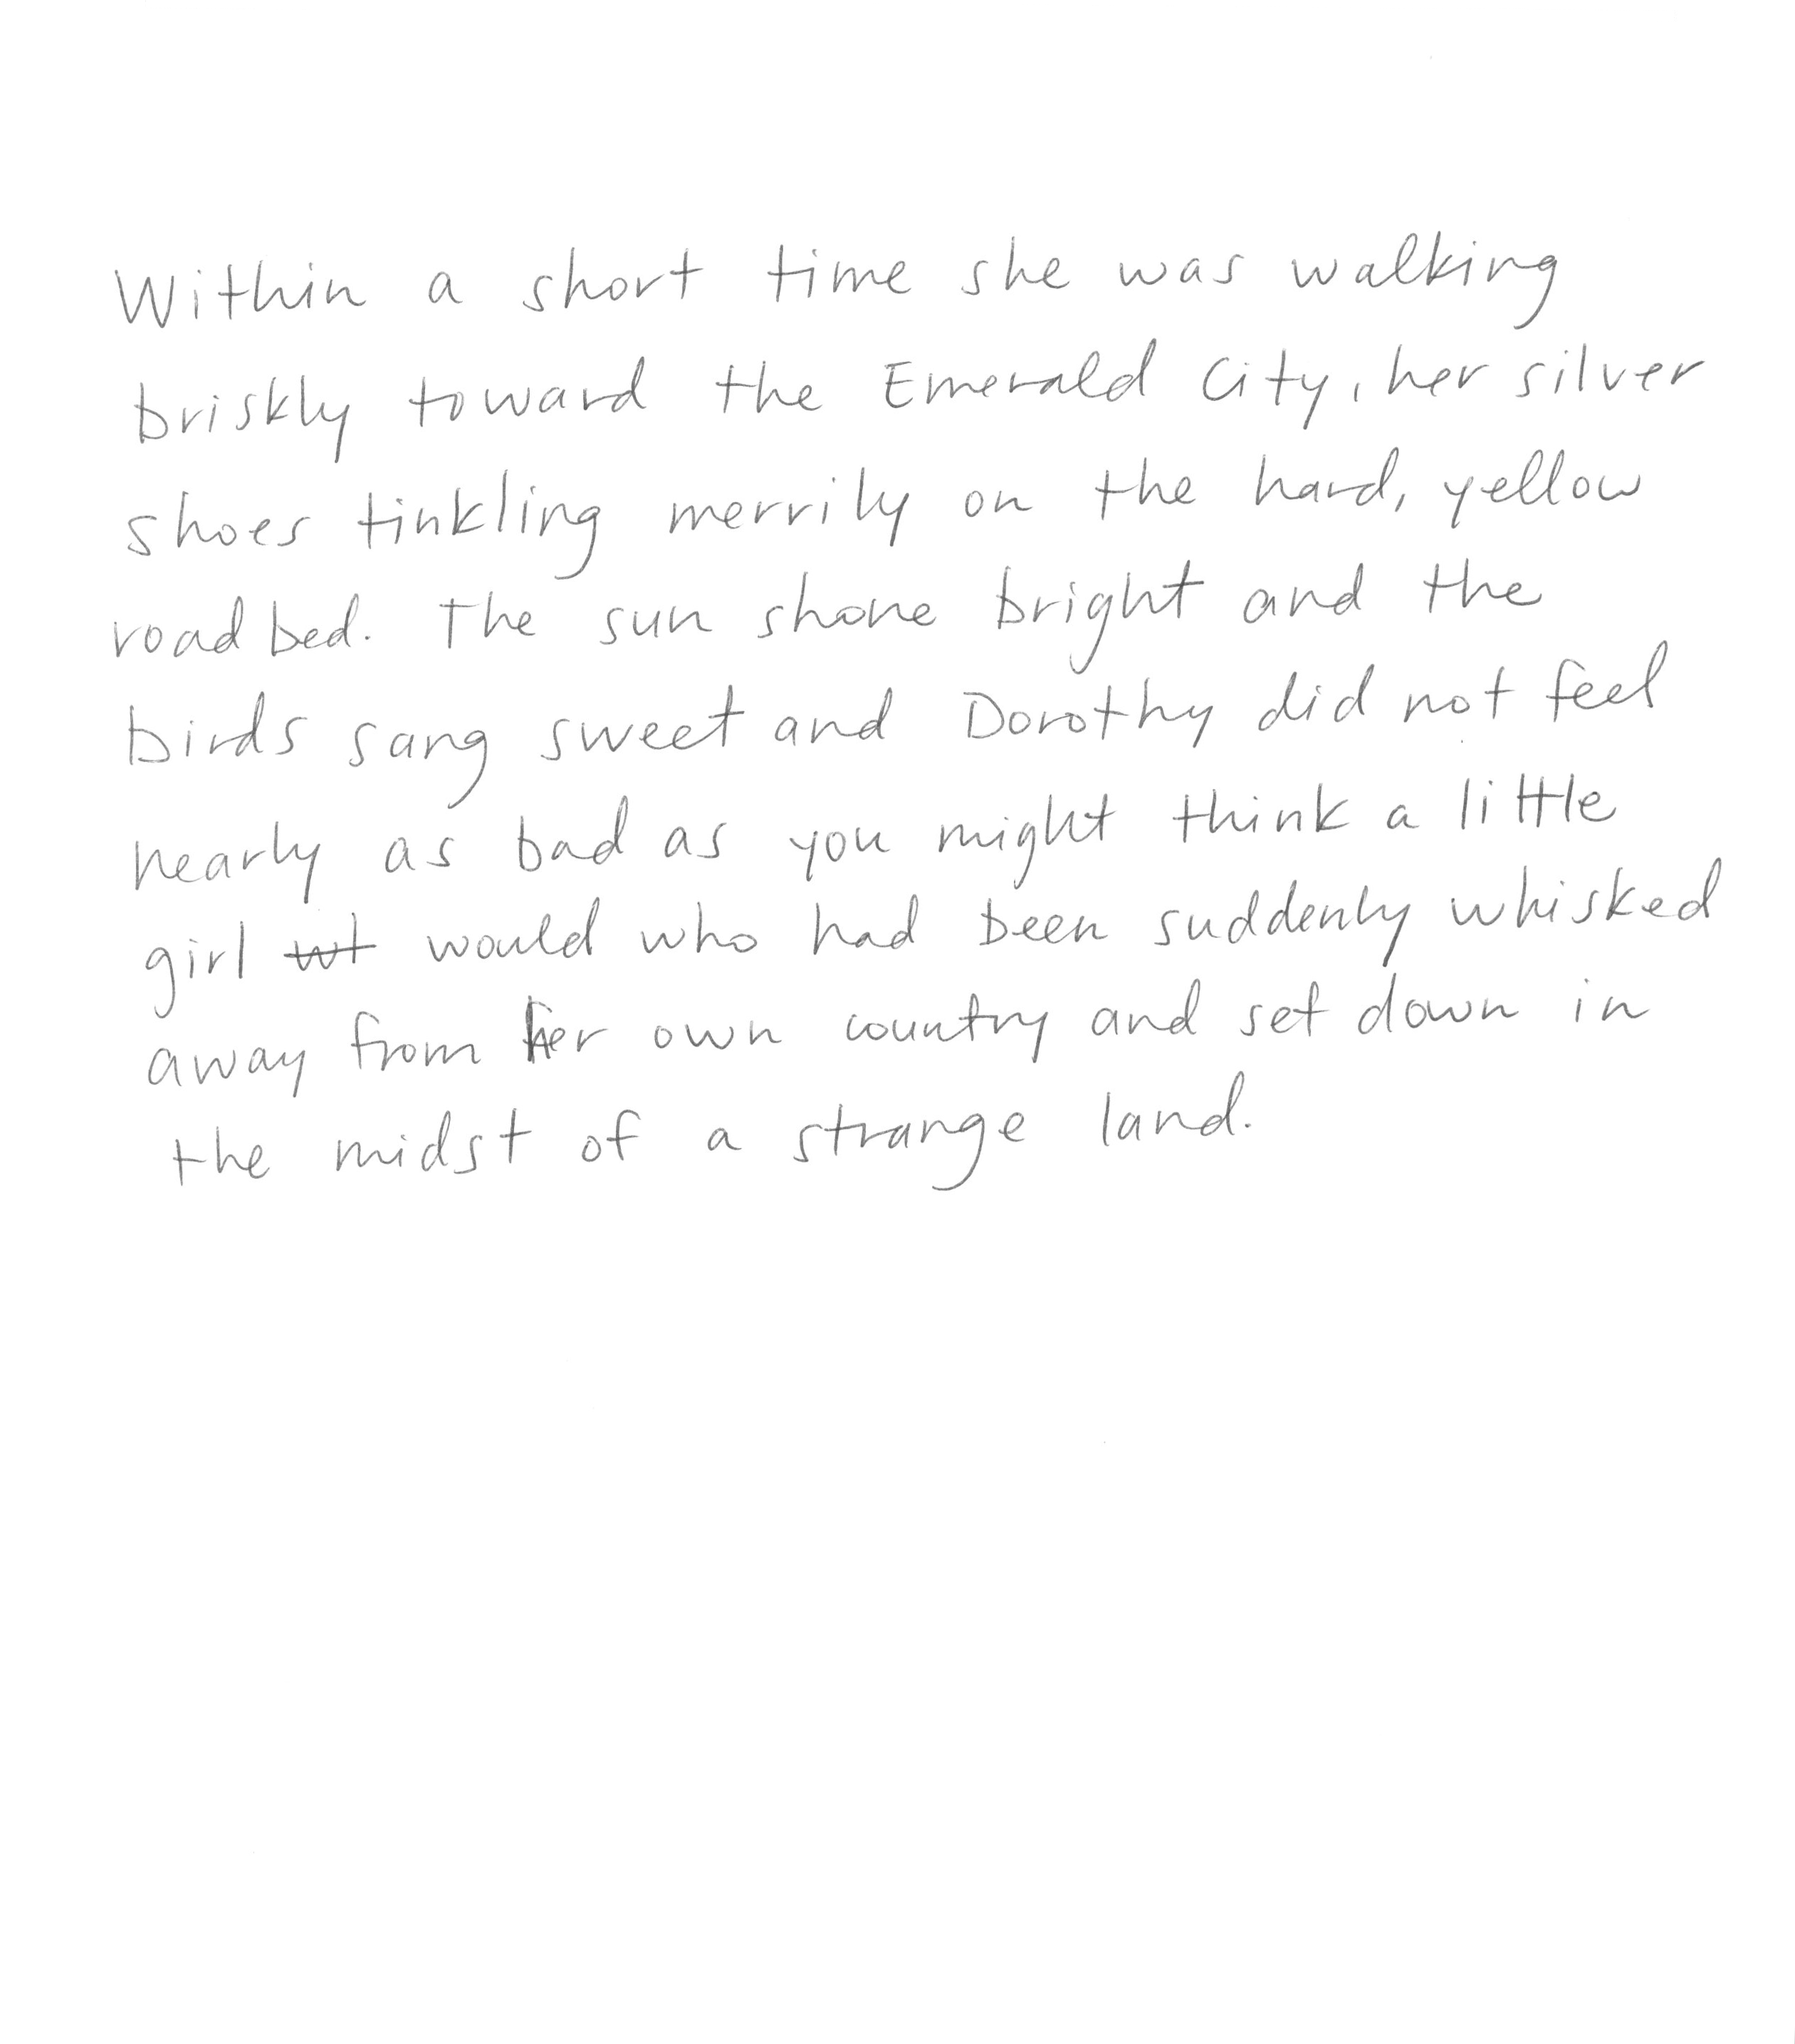 Within a short time she was walking
briskly toward the Emerald City, her silver
shoes tinkling merrily on the hard, yellow
roadbed. The sun shone bright and the
birds sang sweet and Dorothy did not feel
nearly as bad as you might think a little
girl would who had been suddenly whisked
away from her own country and set down in
the midst of a strange land.